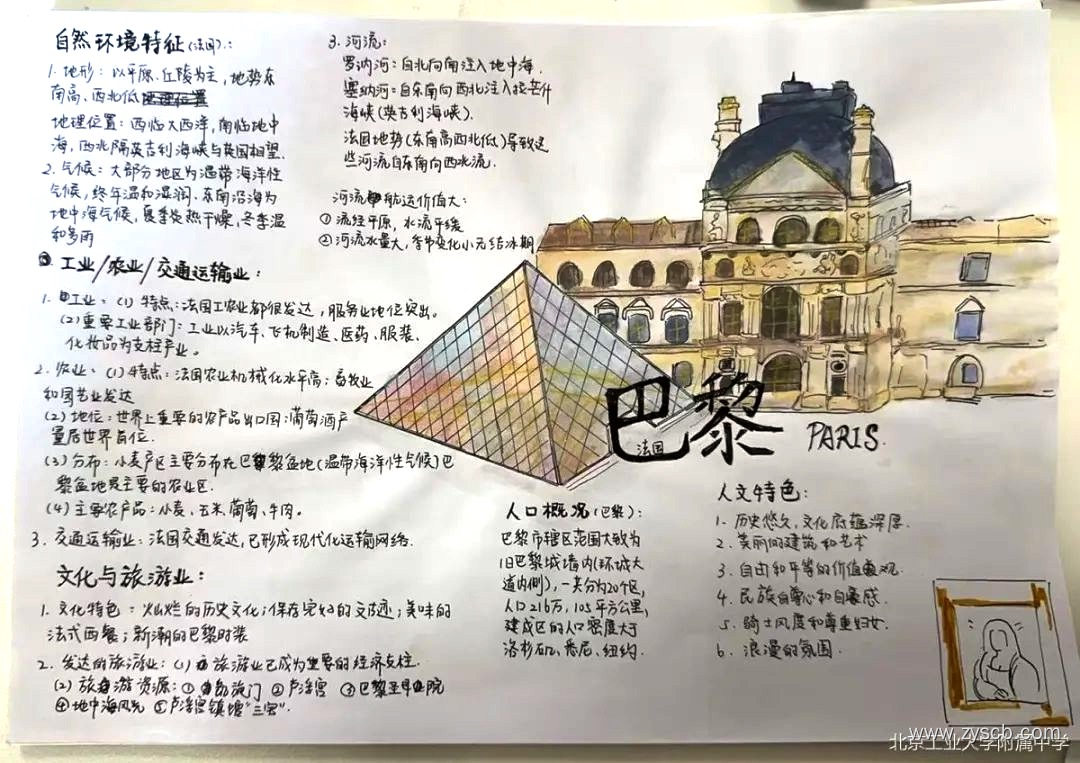 自然环境特征(法国):
1. 地形: 以平原、丘陵为主, 地势东
南高、西北低
地理位置: 西临大西洋, 南临地中
海, 西北隔英吉利海峡与英国相望.
2. 气候: 大部分地区为温带海洋性
气候, 终年温和湿润、东南沿海为
地中海气候, 夏季炎热干燥, 冬季温
和多雨
3. 河流:
罗讷河: 自北向南注入地中海.
塞纳河: 自东南向西北注入拉芒什
海峡(英吉利海峡).
法国地势(东南高西北低)导致这
些河流自东南向西北流.
河流航运价值大:
① 流经平原, 水流平缓
② 河流水量大, 季节变化小无结冰期
工业/农业/交通运输业:
1. 工业: (1) 特点: 法国工农业都很发达, 服务业地位突出。
(2)重要工业部门: 工业以汽车、飞机制造、医药、服装、
化妆品为支柱产业。
2. 农业: (1)特点: 法国农业机械化水平高; 畜牧业
和园艺业发达
(2) 地位: 世界上重要的农产品出口国; 葡萄酒产
量居世界首位.
(3) 分布: 小麦产区主要分布在巴黎盆地(温带海洋性气候)巴
黎盆地是主要的农业区.
(4) 主要农产品: 小麦、玉米、葡萄、牛肉。
3. 交通运输业: 法国交通发达, 已形成现代化运输网络.
文化与旅游业:
1. 文化特色: 灿烂的历史文化; 保存完好的文迹; 美味的
法式西餐; 新潮的巴黎时装
2. 发达的旅游业: (1) 旅游业已成为重要的经济支柱.
(2) 旅游资源: ① 凯旋门 ② 卢浮宫 ③ 巴黎圣母院
④地中海风光 ⑤卢浮宫镇馆"三宝".
巴黎 PARIS.
法国
人口概况(巴黎):
巴黎市辖区范围大致为
旧巴黎城墙内(环城大
道内侧), 一共分为20个区,
人口216万, 105平方公里,
建成区的人口密度大于
洛杉矶、悉尼、纽约.
人文特色:
1. 历史悠久, 文化底蕴深厚.
2. 美丽的建筑和艺术
3. 自由和平等的价值观.
4. 民族自尊心和自豪感.
5. 骑士风度和尊重妇女.
6. 浪漫的氛围.
www.zyscb.com
北京工业大学附属中学